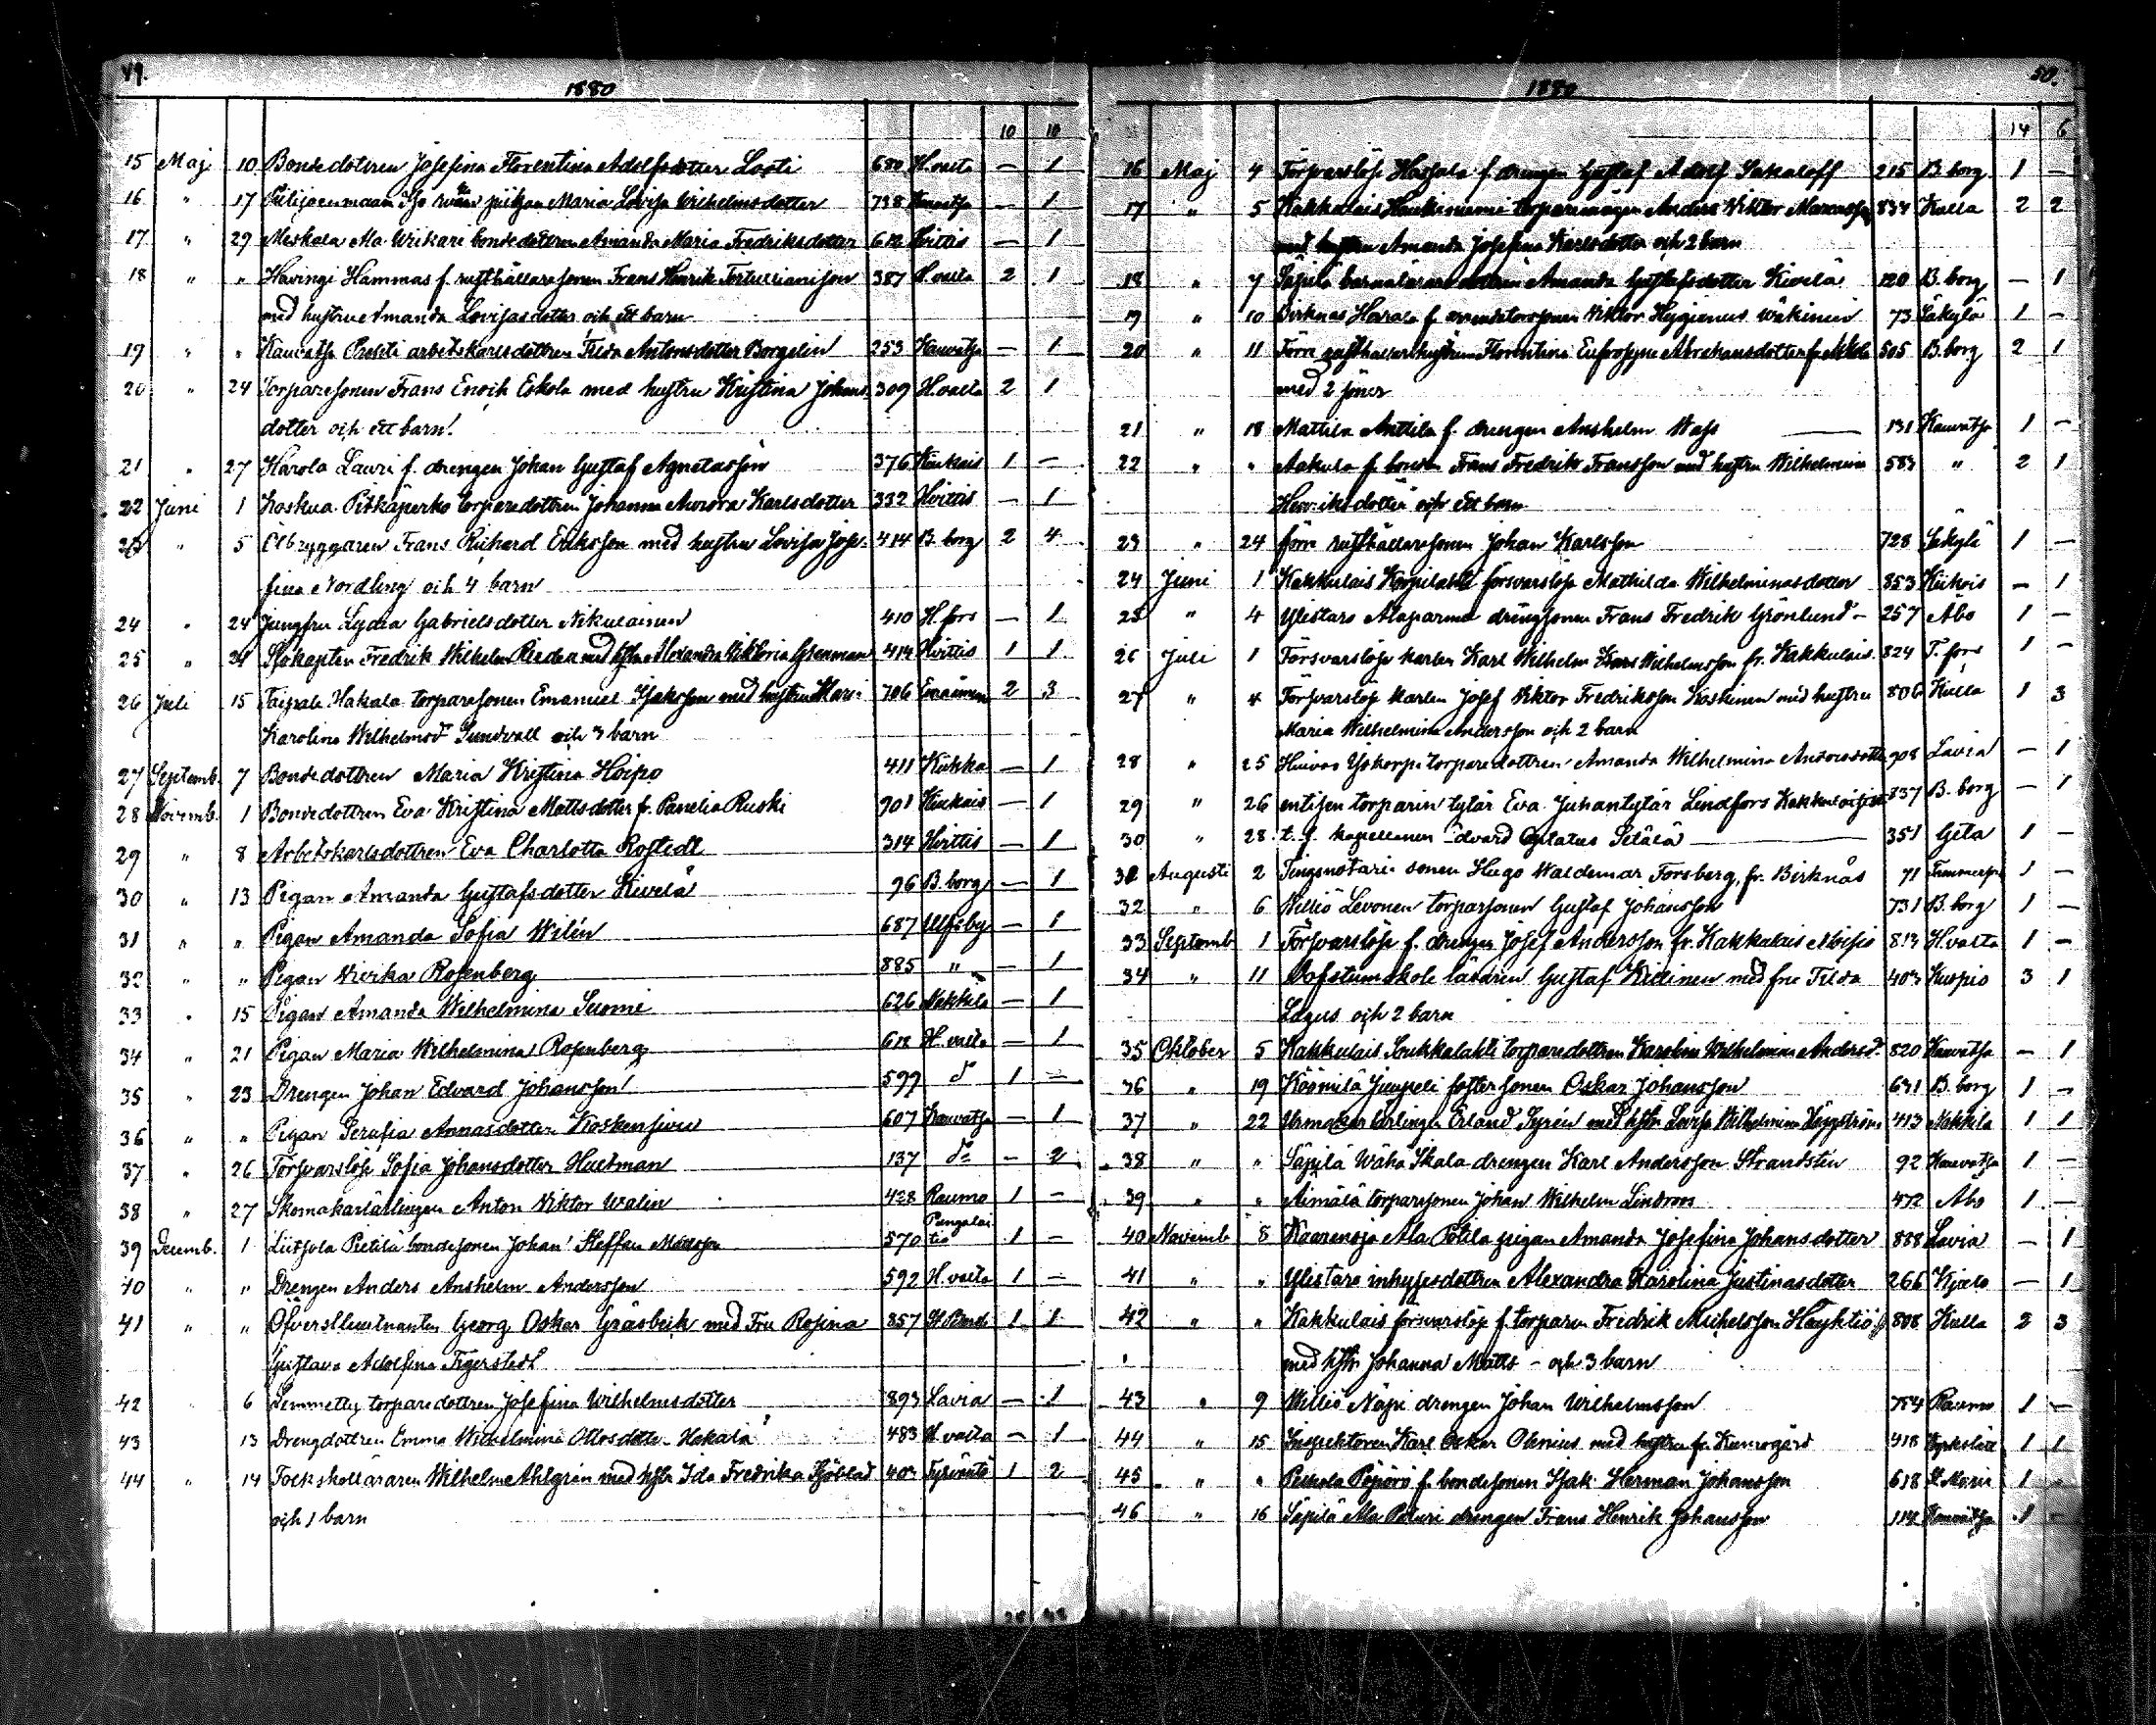 49.
1880
10 10
15 Maj 10 Bondedottren Josefina Florentina Adolfsdotter Losti 680 H.valta — 1
16 " 17 piikjan Maria Lovisa Wilhelmsdotter 738 — 1
17 " 29 Meskala Ala Wrikari bondedottren Amanda Maria Fredriksdotter 612 Hvittis — 1
18 " " Havingi Hammas f. rusthållaresonen Frans Henrik 387 H.valta 2 1
med hustru Amanda Lovisasdotter och ett barn
19 " " Kauvatsa arbetskarlsdottren Tilda Antonsdotter Borgelin 253 Kauvatsa — 1
20 " 24 Torparesonen Frans Enoik Eskola med hustru Kristina Johans 309 H.valta 2 1
dotter och ett barn.
21 " 27 Harola Lauri f. drengen Johan Gustaf Agnetasson 376 Kiukais 1 —
22 Juni 1 Koskua Pitkäperko torparedottren Johanna Aurora Karlsdotter 332 Hvittis — 1
23 " 5 Ölbryggaren Frans Richard Eriksson med hustru Lovisa Jose- 414 B.borg 2 4
fina Nordling och 4 barn
24 " 24 Jungfru Lydia Gabrielsdotter Nikulainen 410 H.fors — 1
25 " 24 Sjökapten Fredrik Wilhelm med hstr Alexandra Viktoria 414 Hvittis 1 1
26 Juli 15 Taipale Hakala torparesonen Emanuel Isaksson med hustru Mari- 706 2 3
Karolina Wilhelmsd Sundvall och 3 barn
27 Septemb. 7 Bondedottren Maria Kristina Hoipo 411 — 1
28 Novemb. 1 Bondedottren Eva Kristina Mattsdotter fr. Panelia Ruski 901 Kiukais — 1
29 " 8 Arbetskarlsdottren Eva Charlotta Rostedt 314 Hvittis — 1
30 " 13 Pigan Amanda Gustafsdotter Kivelä 96 B.borg — 1
31 " " Pigan Amanda Sofia Wilén 687 Ulfsby — 1
32 " " Pigan Vivika Rosenberg 885 " — 1
33 " 15 Pigan Amanda Wilhelmina Suomi 626 Nakkila — 1
34 " 21 Pigan Maria Wilhelmina Rosenberg 612 H.valta — 1
35 " 23 Drengen Johan Edvard Johansson 599 1 —
36 " " Pigan Serafia Annasdotter Koskensivu 607 Kauvatsa — 1
37 " 26 Försvarslöse Sofia Johansdotter Hultman 137 — 2
38 " 27 Skomakarlärlingen Anton Viktor Walin 428 Raumo 1 —
39 Decemb. 1 Liitsola Pietilä bondesonen Johan Steffan Mattsson 570 Pungalaitio 1 —
40 " " Drengen Anders Anshelm Andersson 592 H.valta 1 —
41 " " Öfverstlieutnanten Georg Oskar Gräsbeck med Fru Rosina 857 1 1
Gustava Adolfina Tigerstedt
42 6 Lemmetty torparedottren Josefina Wilhelmsdotter 893 Lavia — 1
43 13 Drengdottren Emma Wilhelmina Ottosdotter Hakala 483 H.valta — 1
44 " 14 Folkskolläraren Wilhelm Ahlgrén med hstr Ida Fredrika Sjöblad 403 Tyrväntö 1 2
och 1 barn
50.
1880
14 6
16 Maj 4 Försvarslöse Hassala f. drengen Gustaf Adolf Sakaloff 215 B.borg 1 —
17 " 5 Kakkulais Haukiniemi torparemågen Anders Viktor Marcusson 834 Kulla 2 2
med hustru Amanda Josefina Karlsdotter och 2 barn
18 " 7 Säpilä barnalärare dottren Amanda Gustafsdotter Kivelä 120 B.borg — 1
19 " 10 Birknäs Harala f. arrendatorssonen Viktor Hyginus Wäkinen 73 Säkylä 1 —
20 " 11 Förr rusthållarehustrun Florentina Eufrosyne Abrahamsdotter 505 B.borg 2 1
med 2 söner
21 " 18 Mattila Anttila f. drengen Anshelm Wass 131 Kauvatsa 1 —
22 " " Aakula f. bonden Frans Fredrik Fransson med hustru Wilhelmina 583 " 2 1
Henriksdotter och ett barn
23 " 24 förr rusthållaresonen Johan Karlsson 728 Säkylä 1 —
24 Juni 1 Kakkulais Korpilahti försvarslöse Mathilda Wilhelminasdotter 853 — 1
25 " 4 Ylistaro Alaparma drengsonen Frans Fredrik Grönlund — 257 Åbo 1 —
26 Juli 1 Försvarslöse karlen Karl Wilhelm Wilhelmsson fr. Kakkulais 824 T.fors 1 —
27 " 4 Försvarslöse karlen Josef Viktor Fredriksson Koskinen med hustru 806 Kulla 1 3
Maria Wilhelmina Andersson och 2 barn
28 " 25 torparedottren Amanda Wilhelmina Andersdotter 908 Lavia — 1
29 " 26 entisen torparin tytär Eva Juhantytär Lindfors 837 B.borg — 1
30 " 28 t.f. kapellanen Edvard Optatus Setälä 351 Geta 1 —
31 Augusti 2 Tingsnotarie sonen Hugo Waldemar Forsberg, fr. Birknäs 71 1 —
32 " 6 Williö Levonen torparsonen Gustaf Johansson 731 B.borg 1 —
33 Septemb 1 Försvarslöse f. drengen Josef Andersson fr. Kakkulais 813 H.valta 1 —
34 " 11 Dofstumskole läraren Gustaf Kiilinen med fru Tilda 403 Kuopio 3 1
Lagus och 2 barn
35 Oktober 5 Kakkulais Soukkalahti torparedottren Karolina Wilhelmina Andersd. 820 Kauvatsa — 1
36 " 19 Köömilä Juupeli fostersonen Oskar Johansson 631 B.borg 1 —
37 " 22 Urmakarlärlingen Erland Syrén med hstr Lovisa Wilhelmina Häggström 413 Nakkila 1 1
38 " " Säpilä Wähä Skala drengen Karl Andersson Strandstén 92 Kauvatsa 1 —
39 " " Äimälä torparsonen Johan Wilhelm Lindroos 472 Åbo 1 —
40 Novemb 8 Kaarenoja Ala Potila pigan Amanda Josefina Johansdotter 888 Lavia — 1
41 " " Ylistaro inhysesdottren Alexandra Karolina Justinasdotter 266 Kjulo — 1
42 " " Kakkulais försvarslöse f. torparen Fredrik Mickelsson 808 Kulla 2 3
med hstr Johanna Matts- och 3 barn
43 " 9 Williö Näpi drengen Johan Wilhelmsson 754 Raumo 1 —
44 " 15 Inspektoren Karl Oskar med hustru fr. Kumogård 418 Kyrkslätt 1 1
45 " " Peskola Pöpörö f. bondesonen Isak Herman Johansson 618 1
46 " 16 Säpilä Ala drengen Frans Henrik Johansson 114 Kauvatsa 1 —